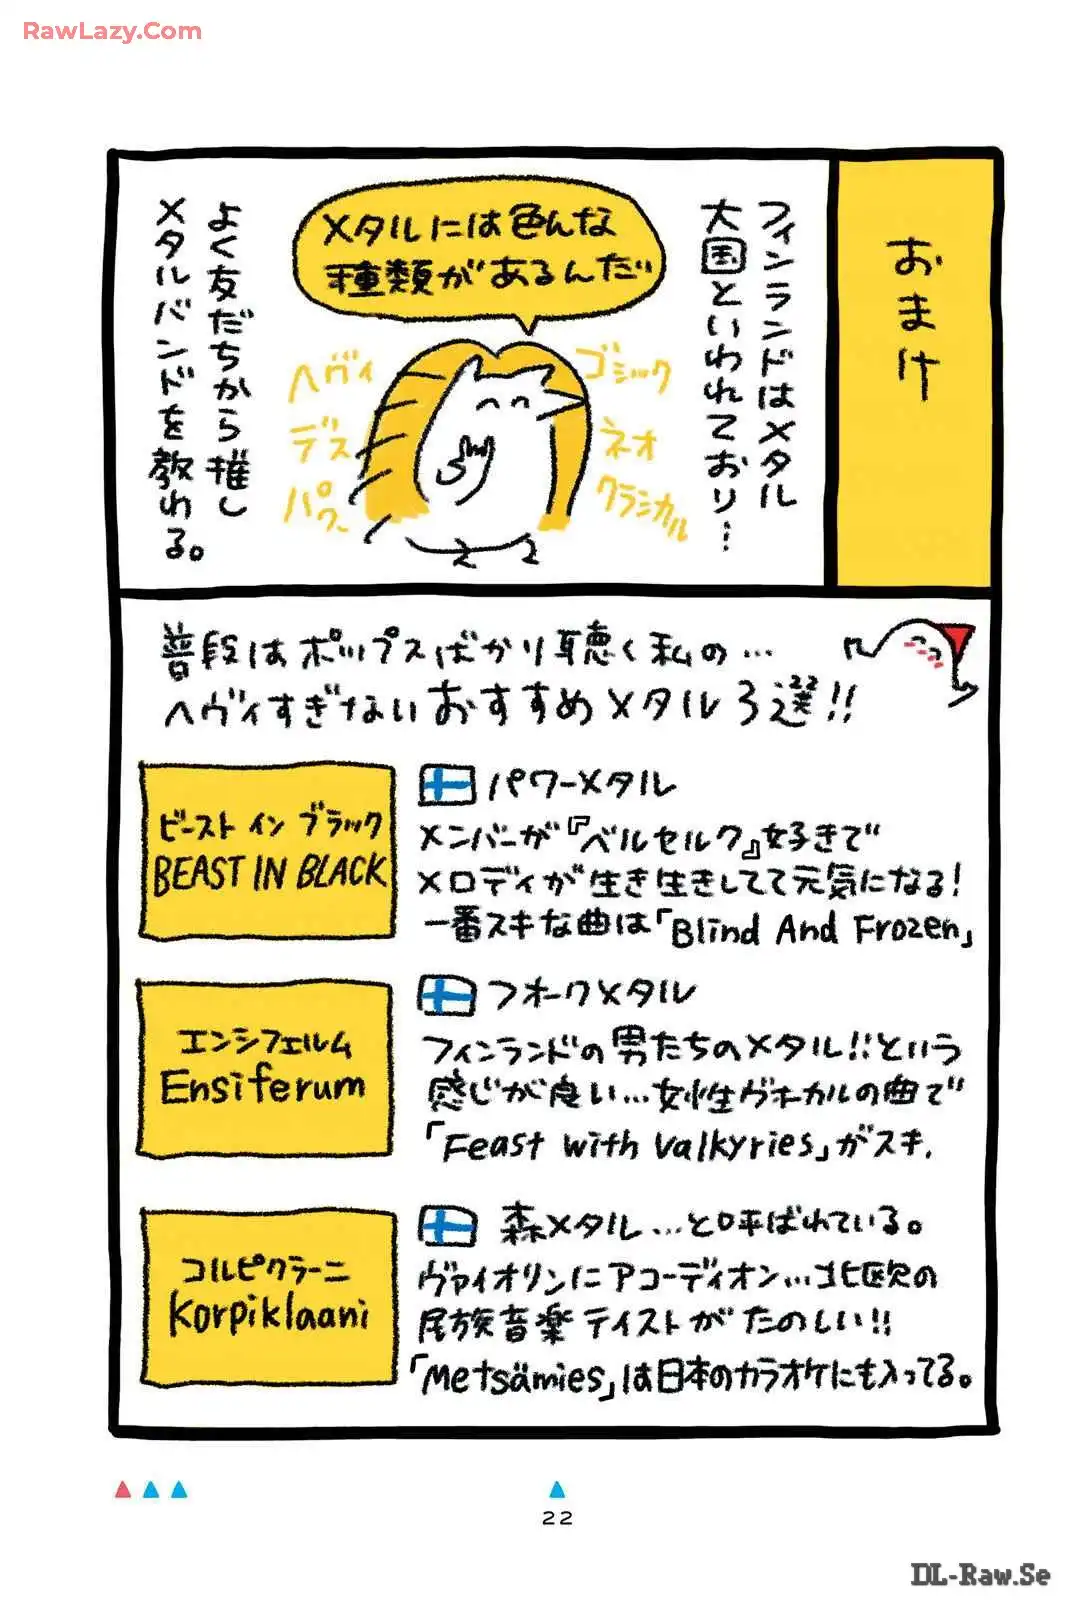 RawLazy.Com
おまけ
フィンランドはメタル
大国といわれており…
メタルには色んな
種類があるんだ
ゴシック
ネオ
クラシカル
ヘヴィ
デス
パワー
よく友だちから推し
メタルバンドを教わる。
普段はポップスばかり聴く私の…
ヘヴィすぎないおすすめメタル3選!!
ビースト イン ブラック
BEAST IN BLACK
パワーメタル
メンバーが『ベルセルク』好きで
メロディが生き生きしてて元気になる!
一番スキな曲は「Blind And Frozen」
エンシフェルム
Ensiferum
フォークメタル
フィンランドの男たちのメタル!!という
感じが良い…女性ヴォーカルの曲で
「Feast with Valkyries」がスキ.
コルピクラーニ
Korpiklaani
森メタル…と呼ばれている。
ヴァイオリンにアコーディオン…北欧の
民族音楽テイストがたのしい!!
「Metsämies」は日本のカラオケにも入ってる。
22
DL-Raw.Se